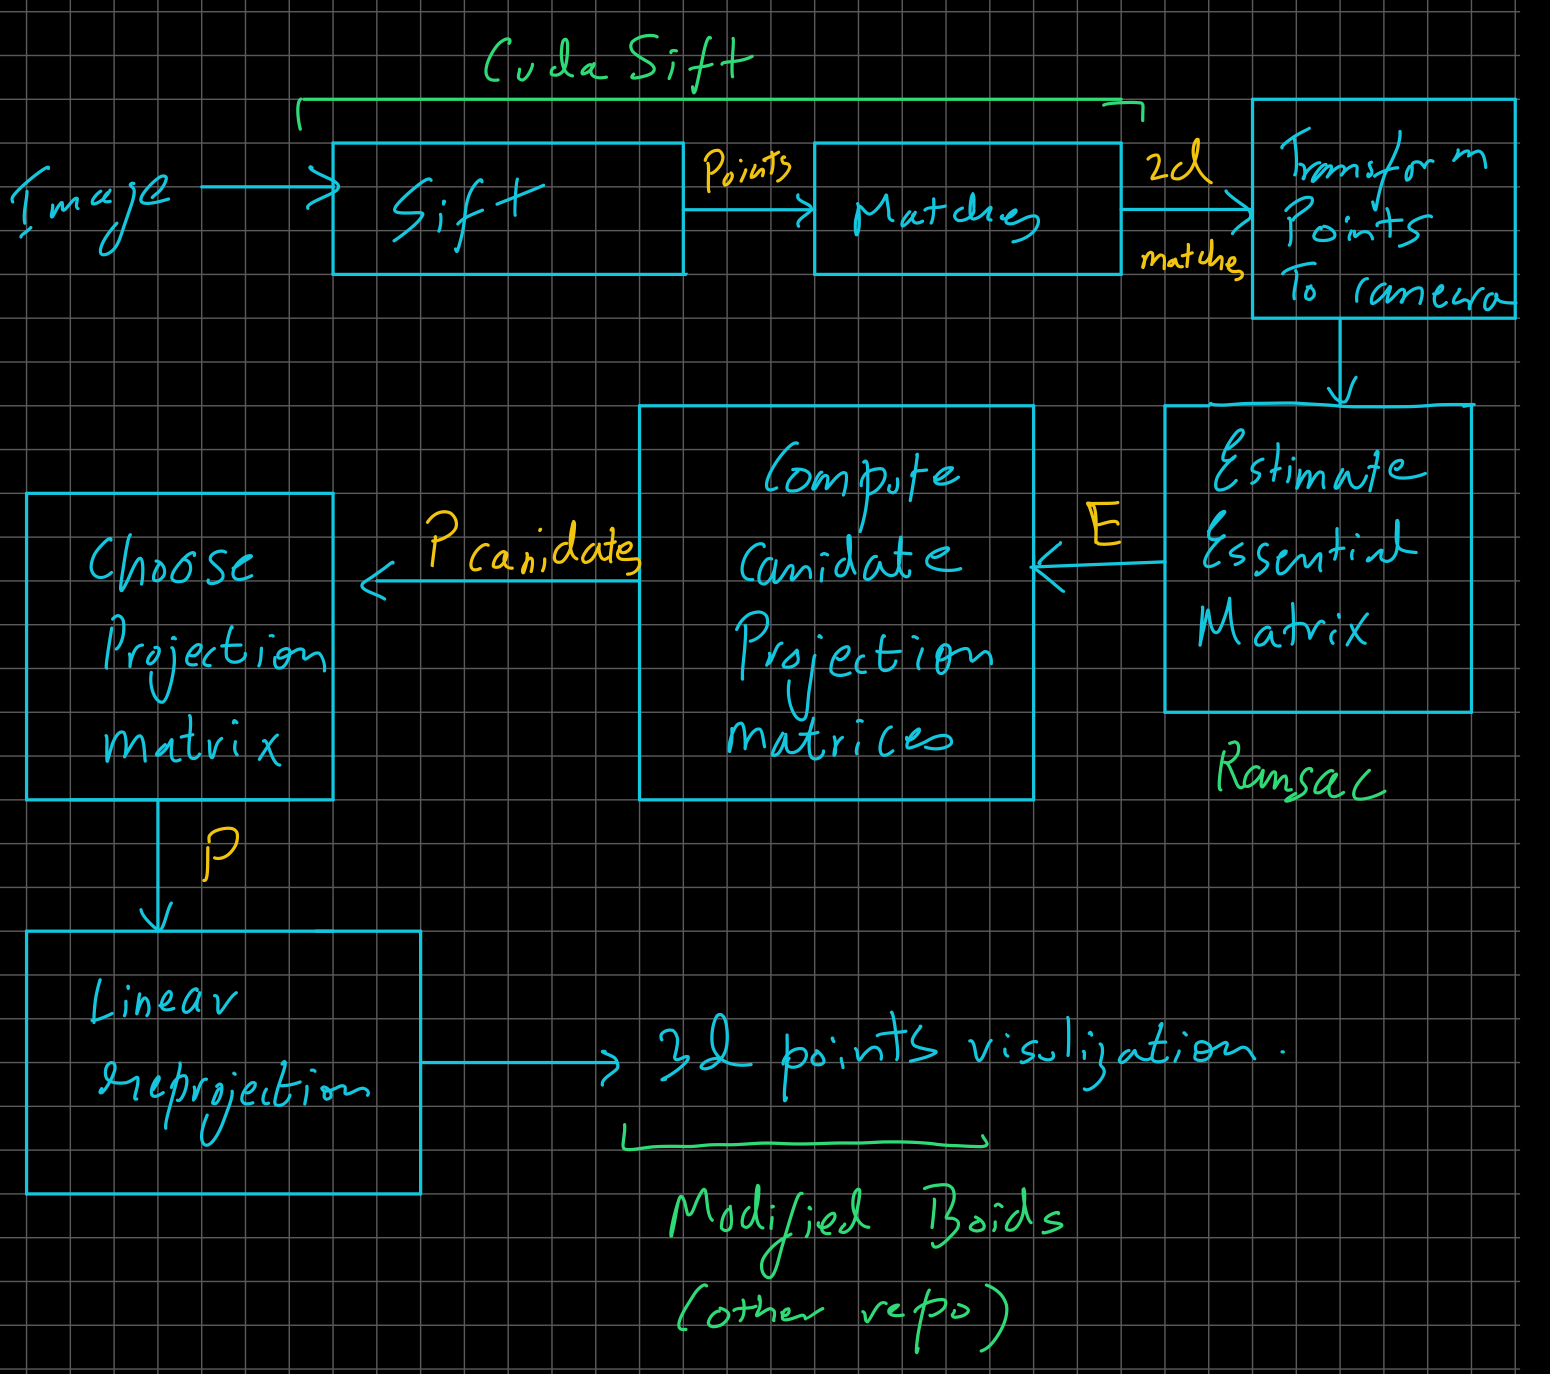 Cuda Sift
Image
Sift
Points
Matches
2d
matches
Transform
Points
To camera
Estimate
Essential
Matrix
Ransac
E
Compute
Canidate
Projection
matrices
P canidates
Choose
Projection
matrix
P
Linear
reprojection
3d points visulization.
Modified Boids
(other repo)